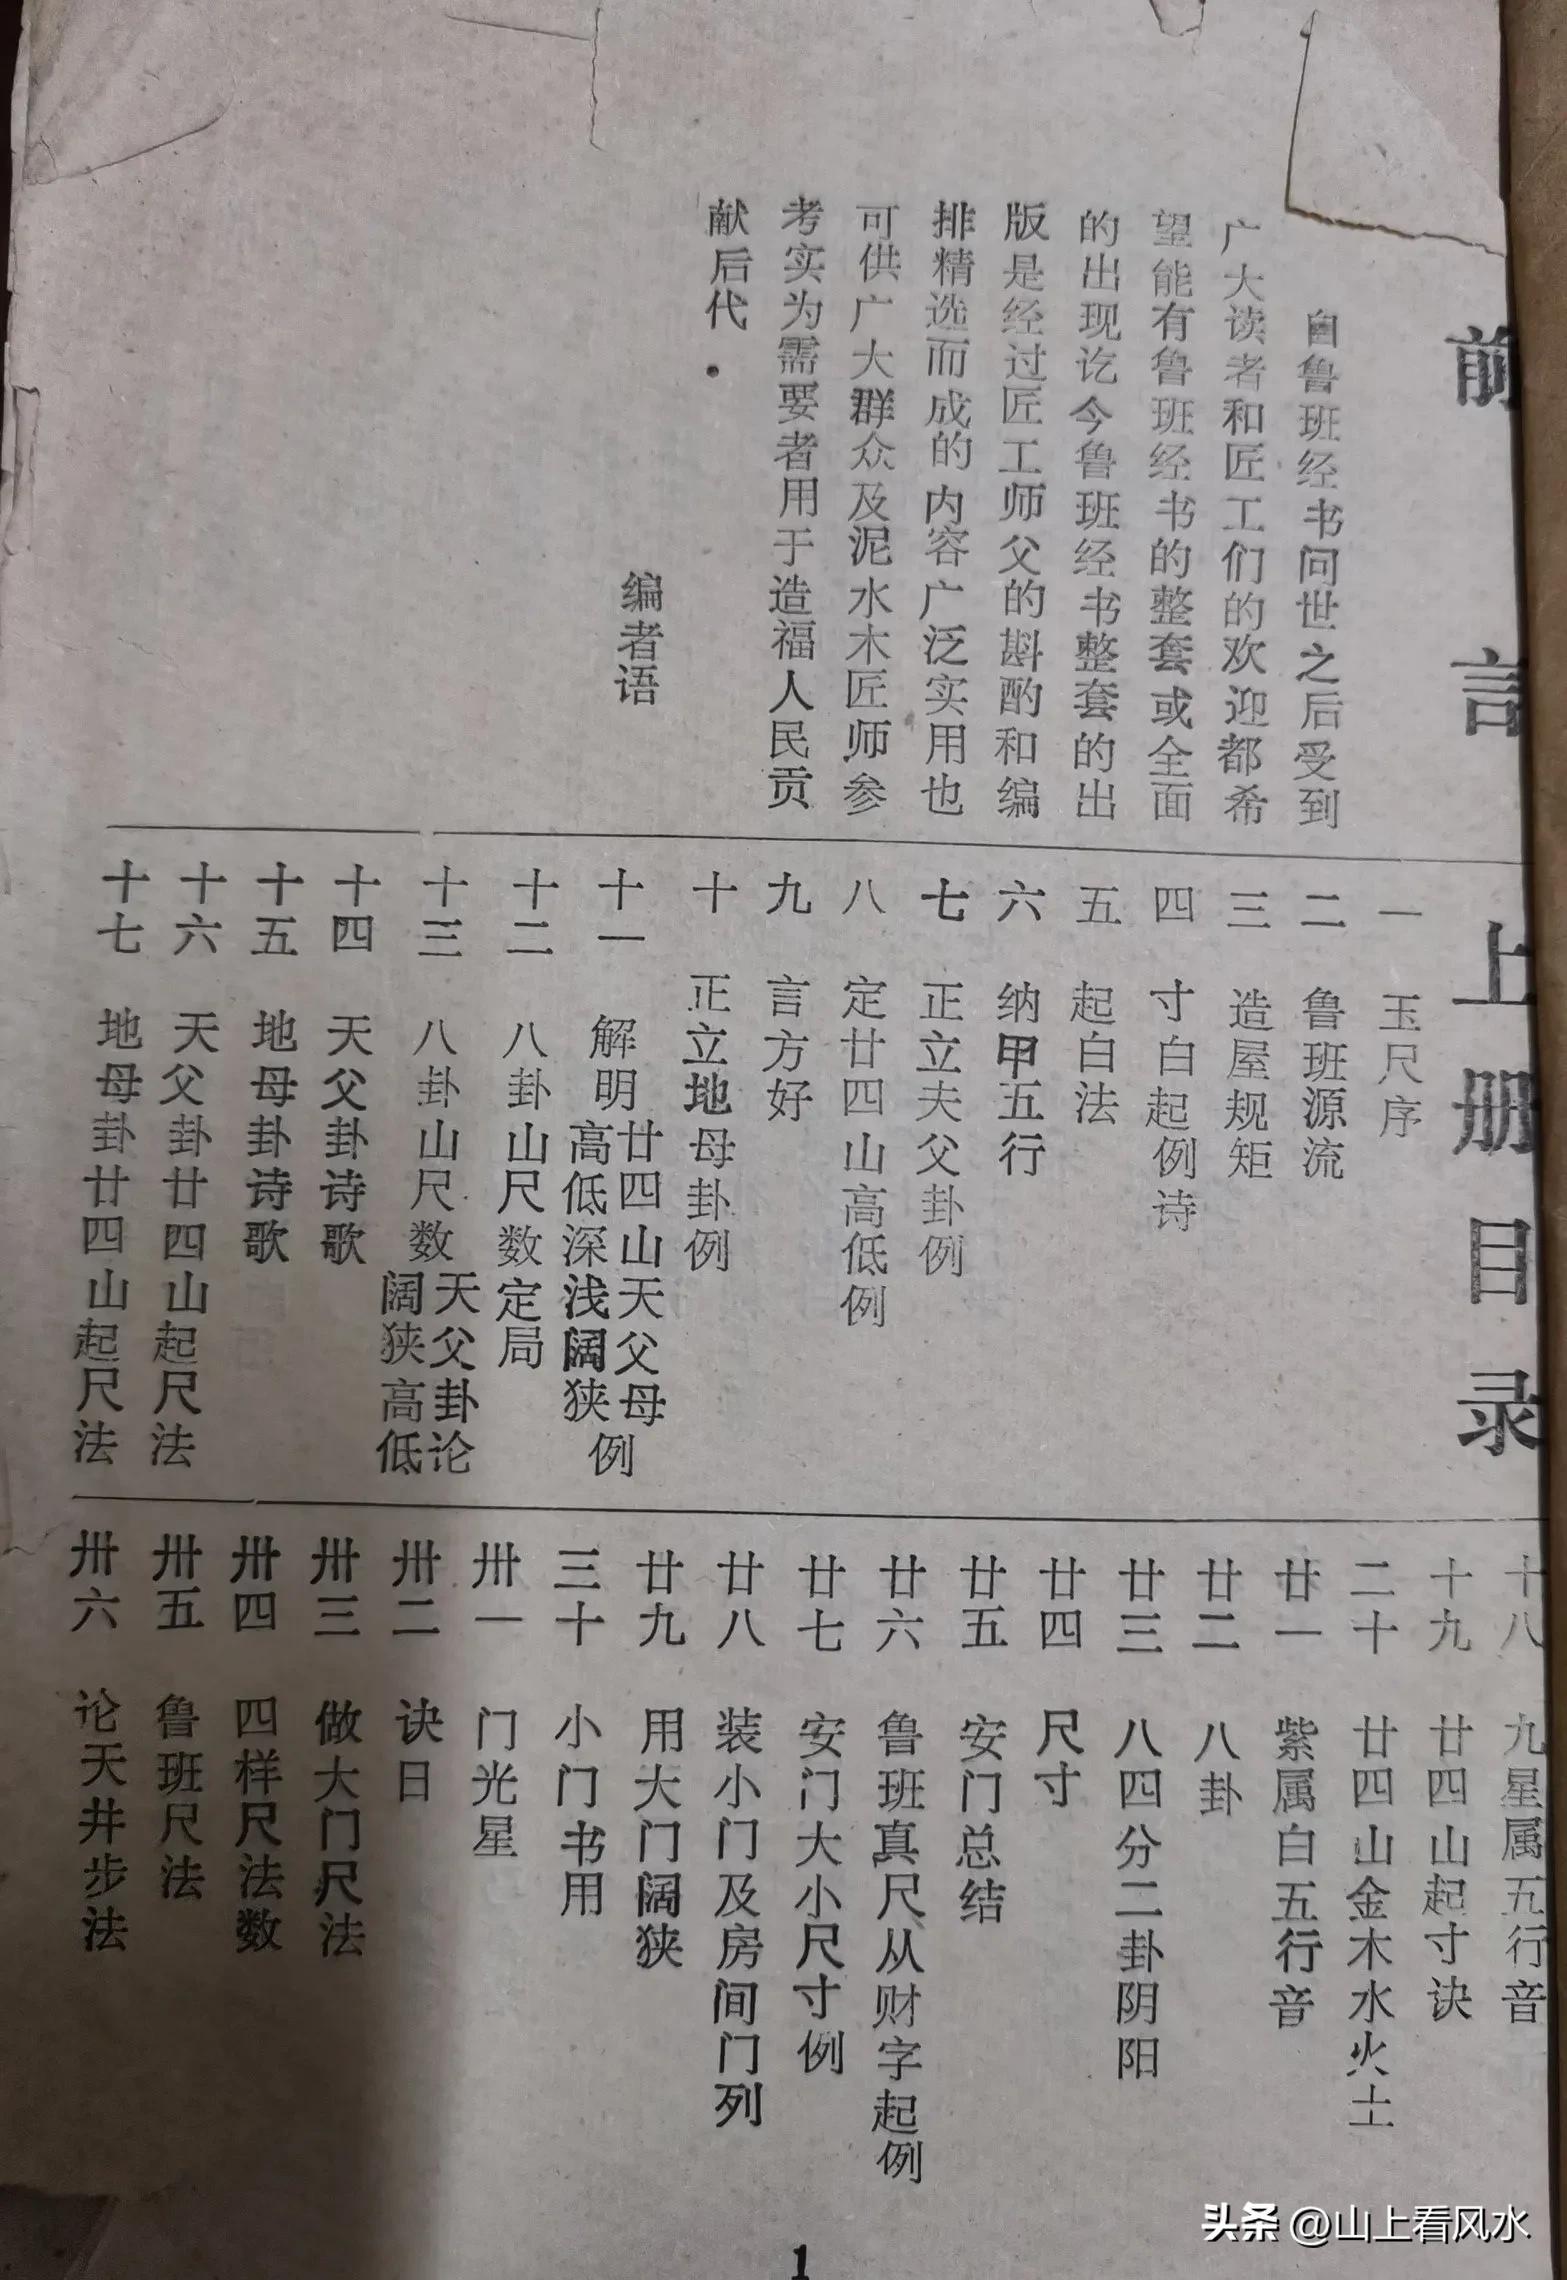 前言
自鲁班经书问世之后受到
广大读者和匠工们的欢迎都希
望能有鲁班经书的整套或全面
的出现讫今鲁班经书整套的出
版是经过匠工师父的斟酌和编
排精选而成的内容广泛实用也
可供广大群众及泥水木匠师参
考实为需要者用于造福人民贡
献后代.
编者语
上册目录
一 玉尺序
二 鲁班源流
三 造屋规矩
四 寸白起例诗
五 起白法
六 纳甲五行
七 正立夫父卦例
八 定廿四山高低例
九 言方好
十 正立地母卦例
十一 解明廿四山天父母高低深浅阔狭例
十二 八卦山尺数定局
十三 八卦山尺数天父卦论阔狭高低
十四 天父卦诗歌
十五 地母卦诗歌
十六 天父卦廿四山起尺法
十七 地母卦廿四山起尺法
十八 九星属五行音
十九 廿四山起寸诀
二十 廿四山金木水火土
廿一 紫属白五行音
廿二 八卦
廿三 八四分二卦阴阳
廿四 尺寸
廿五 安门总结
廿六 鲁班真尺从财字起例
廿七 安门大小尺寸例
廿八 装小门及房间门列
廿九 用大门阔狭
三十 小门书用
卅一 门光星
卅二 诀日
卅三 做大门尺法
卅四 四样尺法数
卅五 鲁班尺法
卅六 论天井步法
1
头条 @山上看风水